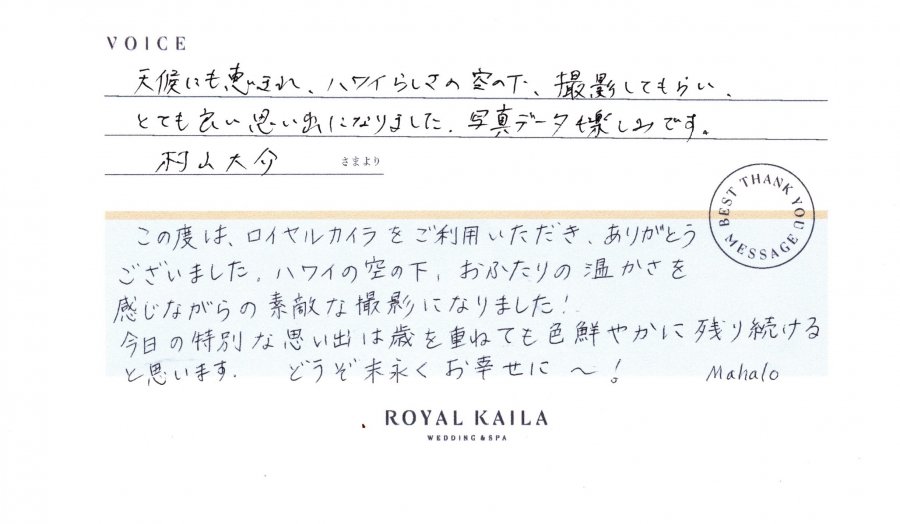 VOICE
天候にも恵まれ、ハワイらしさの空の下、撮影してもらい、
とても良い思い出になりました。写真データも楽しみです。
村山大介 さまより
BEST THANK YOU MESSAGE
この度は、ロイヤルカイラをご利用いただき、ありがとう
ございました。ハワイの空の下、おふたりの温かさを
感じながらの素敵な撮影になりました!
今日の特別な思い出は歳を重ねても色鮮やかに残り続ける
と思います。 どうぞ末永くお幸せに〜! Mahalo
ROYAL KAILA
WEDDING & SPA